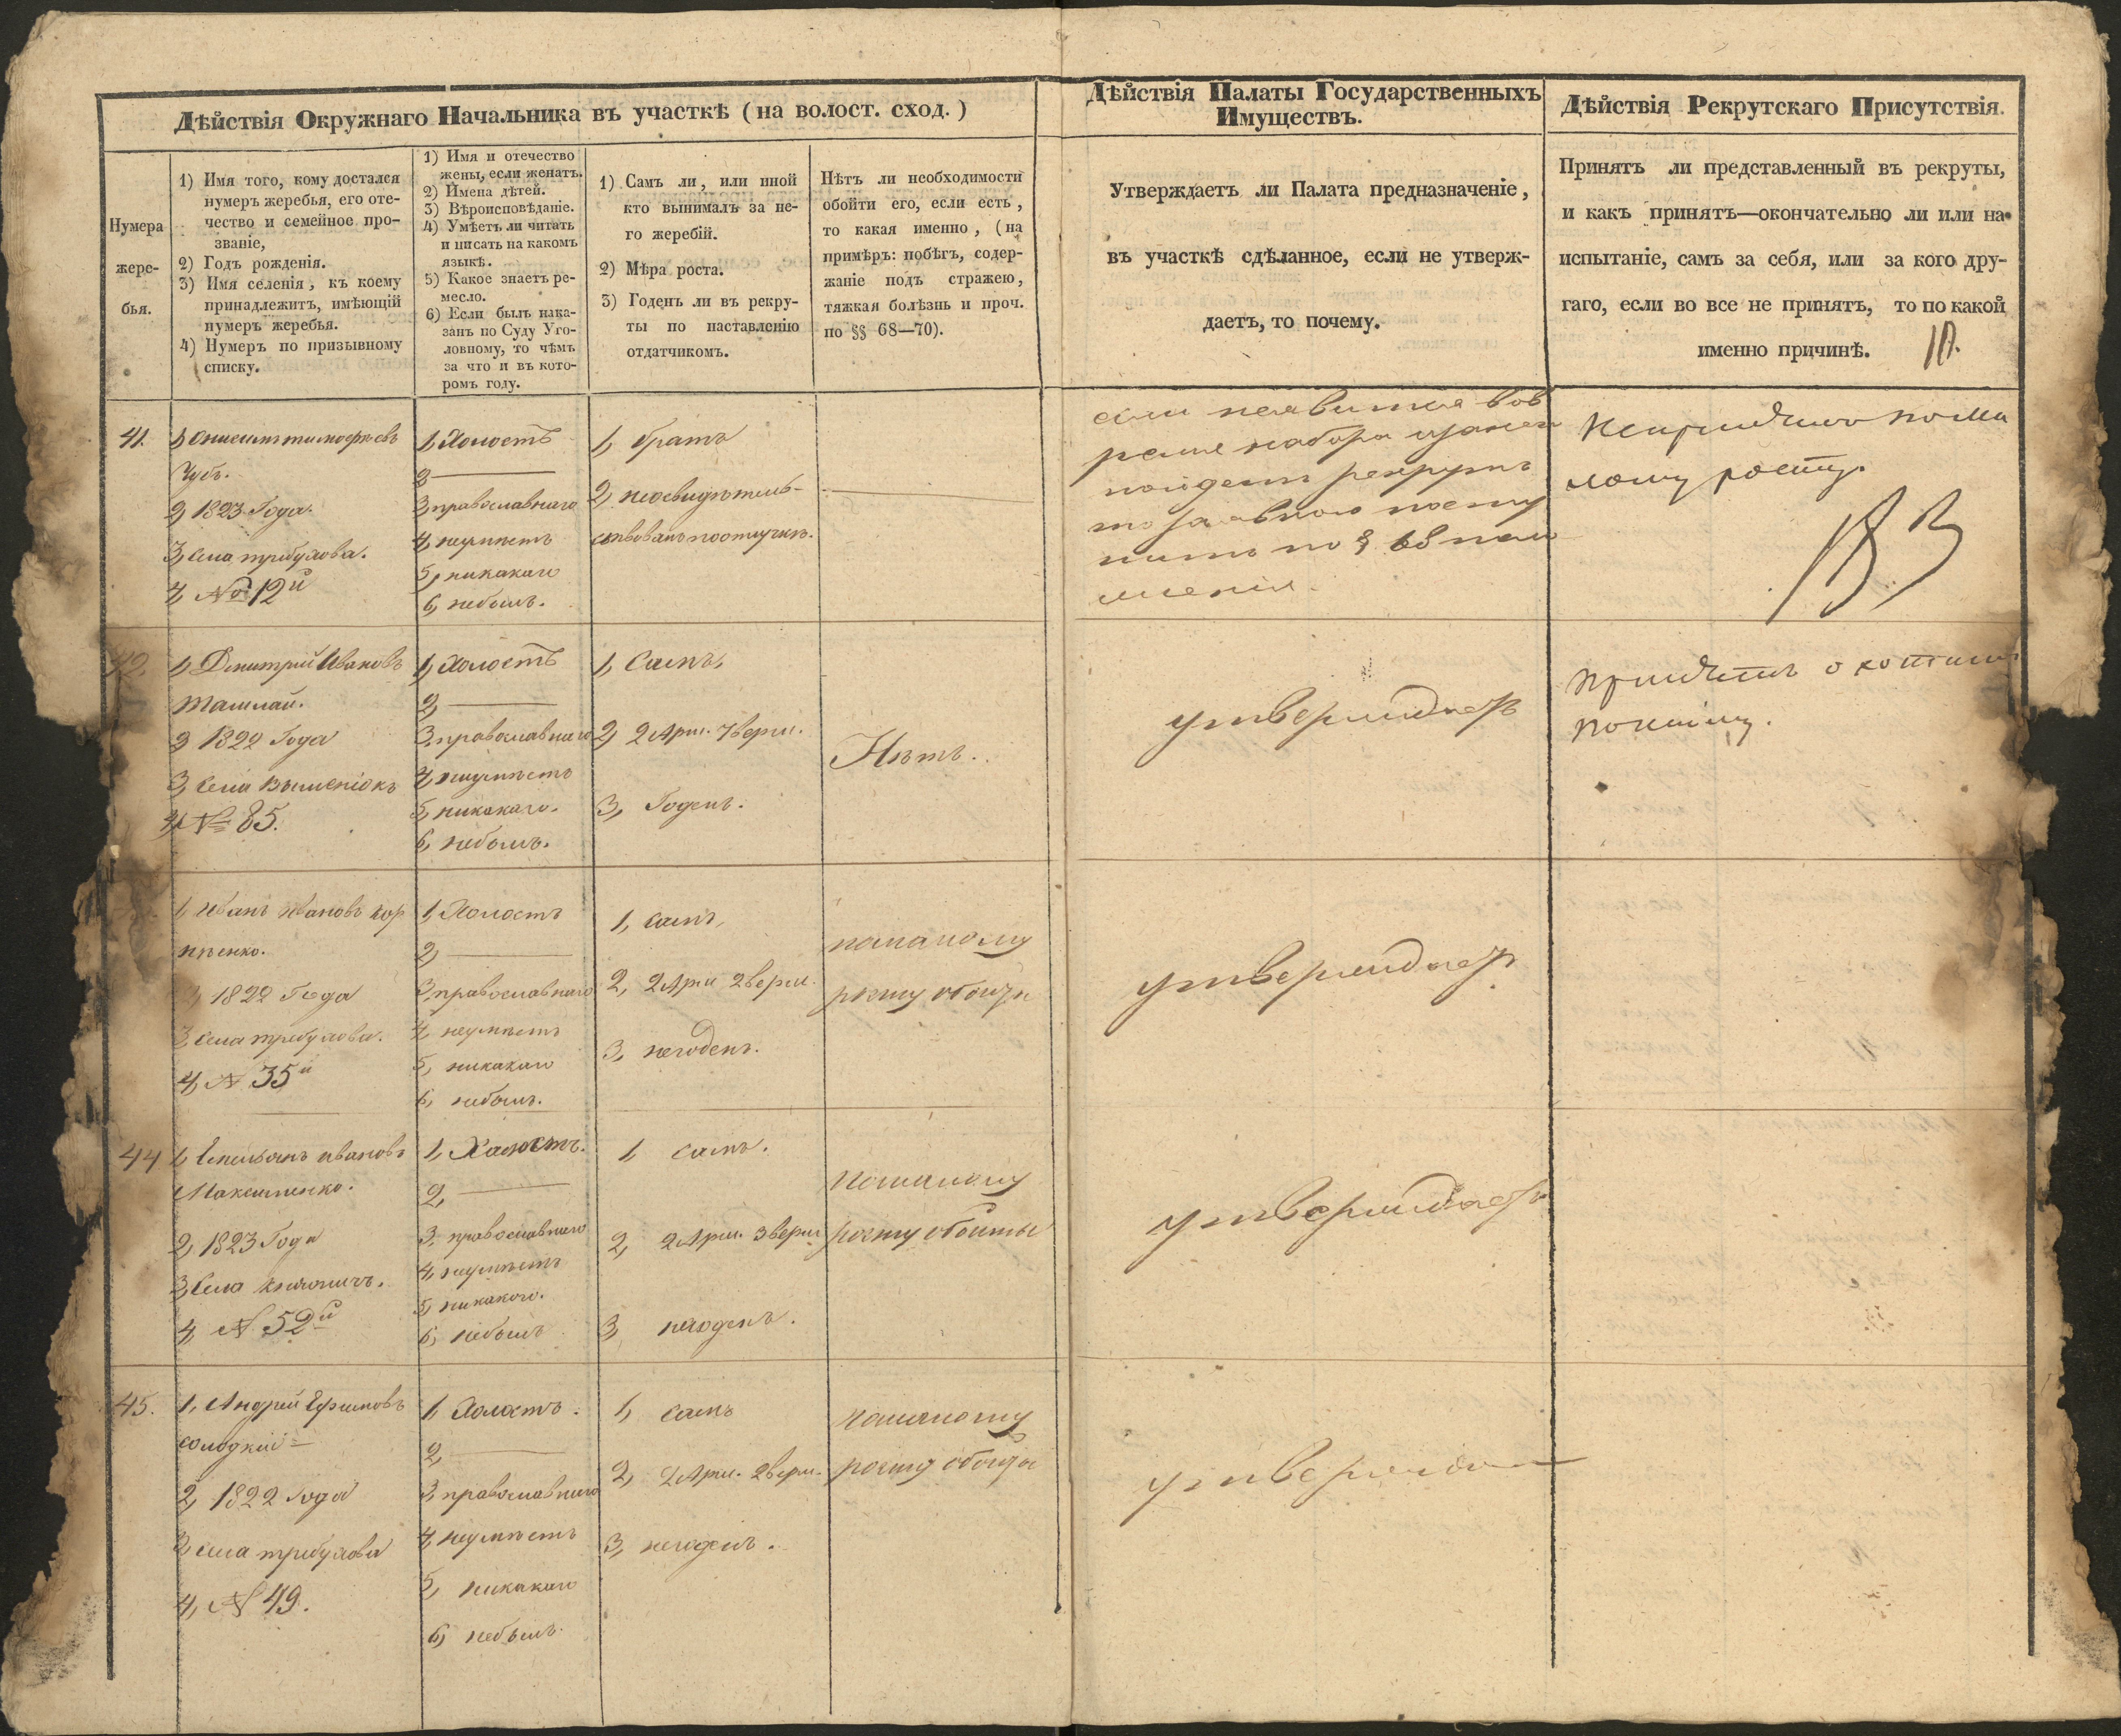 Дѣйствія Окружнаго Начальника въ участкѣ (на волост. сход.)
Дѣйствія Палаты Государственныхъ
Имуществъ.
Дѣйствія Рекрутскаго Присутствія.
Нумера
жере-
бья.
1) Имя того, кому достался
нумеръ жеребья, его оте-
чество и семейное про-
званіе,
2) Годъ рожденія.
3) Имя селенія, къ коему
принадлежитъ, имѣющій
нумеръ жеребья.
4) Нумеръ по призывному
списку.
1) Имя и отечество
жены, если женатъ.
2) Имена дѣтей.
3) Вѣроисповѣданіе.
4) Умѣетъ ли читать
и писать на какомъ
языкѣ.
5) Какое знаетъ ре-
месло.
6) Если былъ нака-
занъ по Суду Уго-
ловному, то чѣмъ
за что и въ кото-
ромъ году.
1) Самъ ли, или иной
кто вынималъ за не-
го жеребій.
2) Мѣра роста.
3) Годенъ ли въ рекру-
ты по наставленію
отдатчикомъ.
Нѣтъ ли необходимости
обойти его, если есть,
то какая именно, (на
примѣръ: побѣгъ, содер-
жаніе подъ стражею,
тяжкая болѣзнь и проч.
по §§ 68—70).
Утверждаетъ ли Палата предназначеніе,
въ участкѣ сдѣланное, если не утверж-
даетъ, то почему.
Принятъ ли представленный въ рекруты,
и какъ принятъ—окончательно ли или на
испытаніе, самъ за себя, или за кого дру-
гаго, если во все не принятъ, то по какой
именно причинѣ.
41.
1, Онисимъ тимофѣевъ
Чубъ.
2, 1823 Года.
3, Села требухова.
4, № 12й
1, Холостъ
2,
3, православнаго
4, неумѣетъ
5, никакаго
6, небылъ.
1, братъ
2, неосвидѣтель-
ствованъ поотлучкѣ.
по § 68
росту.
42.
1, Дмитрій Ивановъ
2, 1822 Года
3, Села
4, № 85.
1, Холостъ
2,
3, православнаго
4, неумѣетъ
5, никакаго.
6, небылъ.
1, Самъ,
2, 2 Арш. 7 верш.
3, Годенъ.
Нѣтъ.
утверждаетъ
1, Иванъ Ивановъ Кор
нѣенко.
2, 1822 Года
3, Села требухова.
4, № 35й
1, Холостъ
2,
3, православнаго
4, неумѣетъ
5, никакаго
6, небылъ.
1, самъ,
2, 2 Арш 2 верш.
3, негоденъ.
помалому
росту обойти
утверждаетъ
44
1, Емельянъ ивановъ
Максименко.
2, 1823 Года
3, Села княжичъ.
4, № 52й
1, Холостъ.
2,
3, православнаго
4, неумѣетъ
5, никакого.
6, небылъ
1, самъ.
2, 2 Арш. 3 верш
3, негоденъ.
помалому
росту обойти
утверждаетъ
45.
1, Андрей Ефимовъ
солодкій
2, 1822 Года
3, села требухова
4, № 49.
1, Холостъ.
2,
3, православнаго
4, неумѣетъ
5, никакаго
6, небылъ.
1, самъ
2, 2 Арш. 2 верш.
3, негоденъ.
помалому
росту обойти